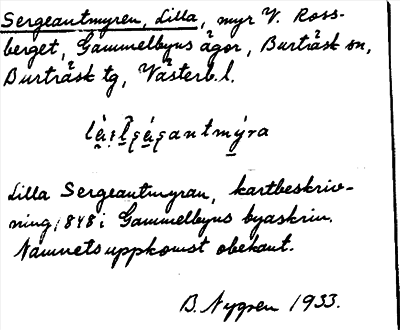 Sergeantmyren, Lilla, myr V. Ross-
berget, Gammelbyns ägor, Burträsk sn,
Burträsk tg, Västerb.l.
Lilla Sergeantmyran, kartbeskriv-
ning 1848 i Gammelbyns byaskrin.
Namnets uppkomst obekant.
B. Nygren 1933.